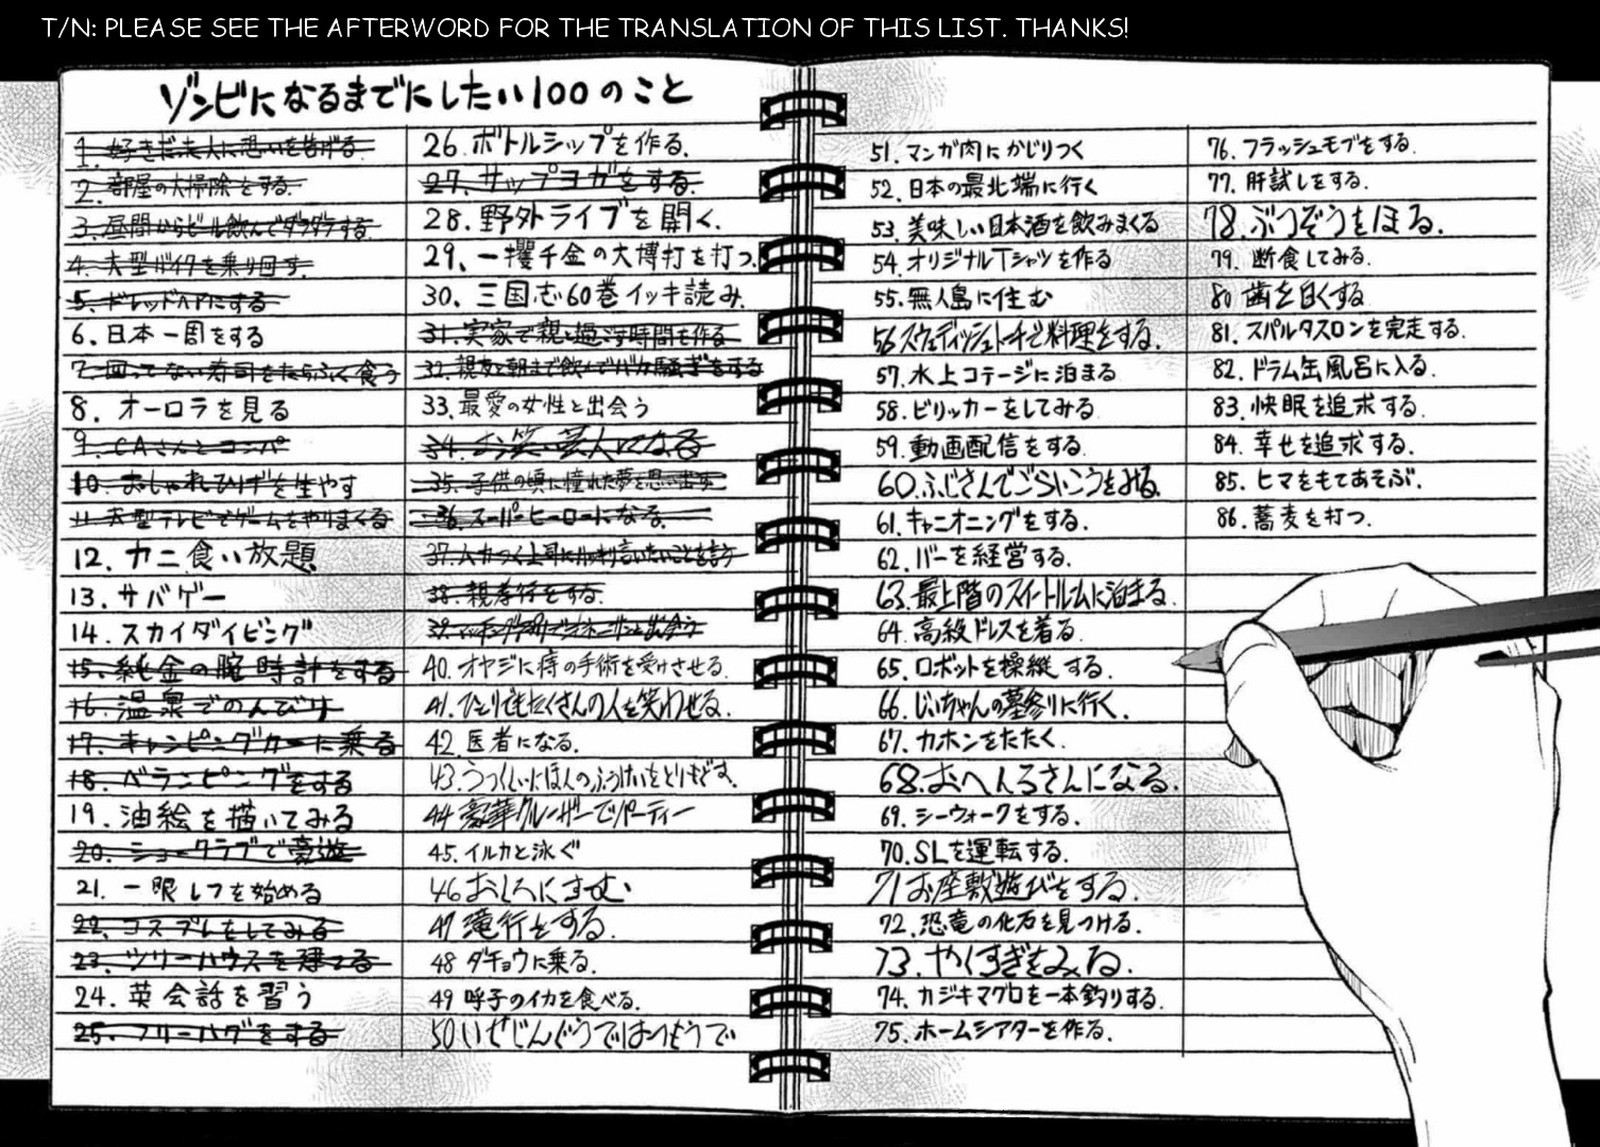 T/N: PLEASE SEE THE AFTERWORD FOR THE TRANSLATION OF THIS LIST. THANKS!
ゾンビになるまでにしたい100のこと
1. 好きだった人に思いを告げる
2. 部屋の大掃除をする.
3. 昼間からビール飲んでダラダラする
4. 大型バイクを乗り回す.
5. ドレッドヘアにする
6. 日本一周をする
7. 回ってない寿司をたらふく食う
8. オーロラを見る
9. CAさんとコンパ
10. おしゃれひげを生やす
11. 大型テレビでゲームをやりまくる
12. カニ食い放題
13. サバゲー
14. スカイダイビング
15. 純金の腕時計をする
16. 温泉でのんびり
17. キャンピングカーに乗る
18. ベランピングをする
19. 油絵を描いてみる
20. ショークラブで豪遊
21. 一眼レフを始める
22. コスプレをしてみる
23. ツリーハウスを建てる
24. 英会話を習う
25. フリーハグをする
26. ボトルシップを作る.
27. サップヨガをする.
28. 野外ライブを開く.
29、一攫千金の大博打を打つ.
30、三国志60巻イッキ読み.
31. 実家で親と過ごす時間を作る
32. 親友と朝まで飲んでバカ騒ぎをする
33. 最愛の女性と出会う
34. お笑い芸人になる
35. 子供の頃に憧れた夢を思い出す
36. スーパーヒーローになる.
37. ムカつく上司に言いたいことを言う
38. 親孝行をする.
39. マッチングアプリで と出会う
40. オヤジに痔の手術を受けさせる.
41. ひとりでもたくさんの人を笑わせる.
42. 医者になる.
43. うつくしいにほんのふうけいをとりもどす.
44 豪華クルーザーでパーティー
45. イルカと泳ぐ
46 おしろにすむ
47 滝行をする.
48 ダチョウに乗る.
49 呼子のイカを食べる.
50 いせじんぐうではつもうで
51. マンガ肉にかじりつく
52. 日本の最北端に行く
53. 美味しい日本酒を飲みまくる
54. オリジナルTシャツを作る
55. 無人島に住む
56 スウェディッシュトーチで料理をする.
57. 水上コテージに泊まる
58. ビリッカーをしてみる
59. 動画配信をする.
60. ふじさんでごらいこうをみる.
61. キャニオニングをする.
62. バーを経営する.
63. 最上階のスイートルームに泊まる.
64. 高級ドレスを着る.
65. ロボットを操縦する.
66. じいちゃんの墓参りに行く.
67. カホンをたたく.
68. おへんろさんになる.
69. シーウォークをする.
70. SLを運転する.
71 お座敷遊びをする.
72. 恐竜の化石を見つける.
73. やくすぎをみる.
74. カジキマグロを一本釣りする.
75. ホームシアターを作る.
76. フラッシュモブをする.
77. 肝試しをする.
78. ぶつぞうをほる.
79. 断食してみる.
80 歯を白くする
81. スパルタスロンを完走する.
82. ドラム缶風呂に入る.
83. 快眠を追求する.
84. 幸せを追求する.
85. ヒマをもてあそぶ.
86. 蕎麦を打つ.